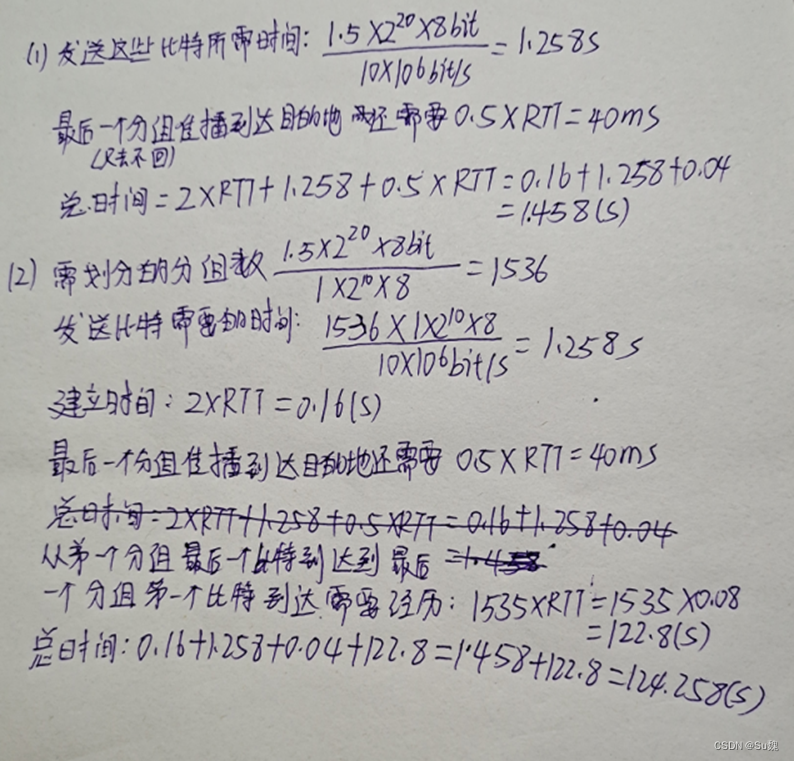 (1) 发送这些比特所需时间: 1.5×2²⁰×8bit / 10×10⁶bit/s = 1.258s
最后一个分组传播到达目的地还需要 0.5×RTT=40ms
(只去不回)
总时间=2×RTT+1.258+0.5×RTT=0.16+1.258+0.04
=1.458(s)
(2) 需划分的分组数 1.5×2²⁰×8bit / 1×2¹⁰×8 = 1536
发送比特需要的时间: 1536×1×2¹⁰×8 / 10×10⁶bit/s = 1.258s
建立时间: 2×RTT=0.16(s)
最后一个分组传播到达目的地还需要 0.5×RTT=40ms
总时间=2×RTT+1.258+0.5×RTT=0.16+1.258+0.04
从第一个分组最后一个比特到达到最后 =1.458
一个分组第一个比特到达需要经历: 1535×RTT=1535×0.08
=122.8(s)
总时间: 0.16+1.258+0.04+122.8=1.458+122.8=124.258(s)
CSDN @Su魏